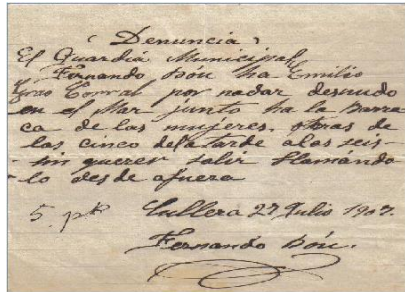 Denuncia
El Guardia Municipal
Fernando Bóu ha Emilio
Grao Corral por nadar desnudo
en el Mar junto ha la Barra
ca de las mujeres. otoras de
las cinco dela tarde a las seis
sin querer salir llamando
lo des de afuera
5. pts Cullera 27 Julio 1907.
Fernando Bóu.